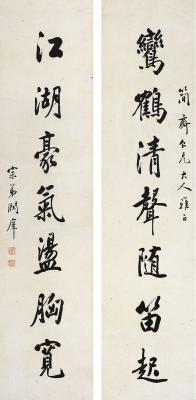 鸞鶴清聲随笛起
簡齋仁兄大人雅正
江湖豪氣盪胸寬
宗弟